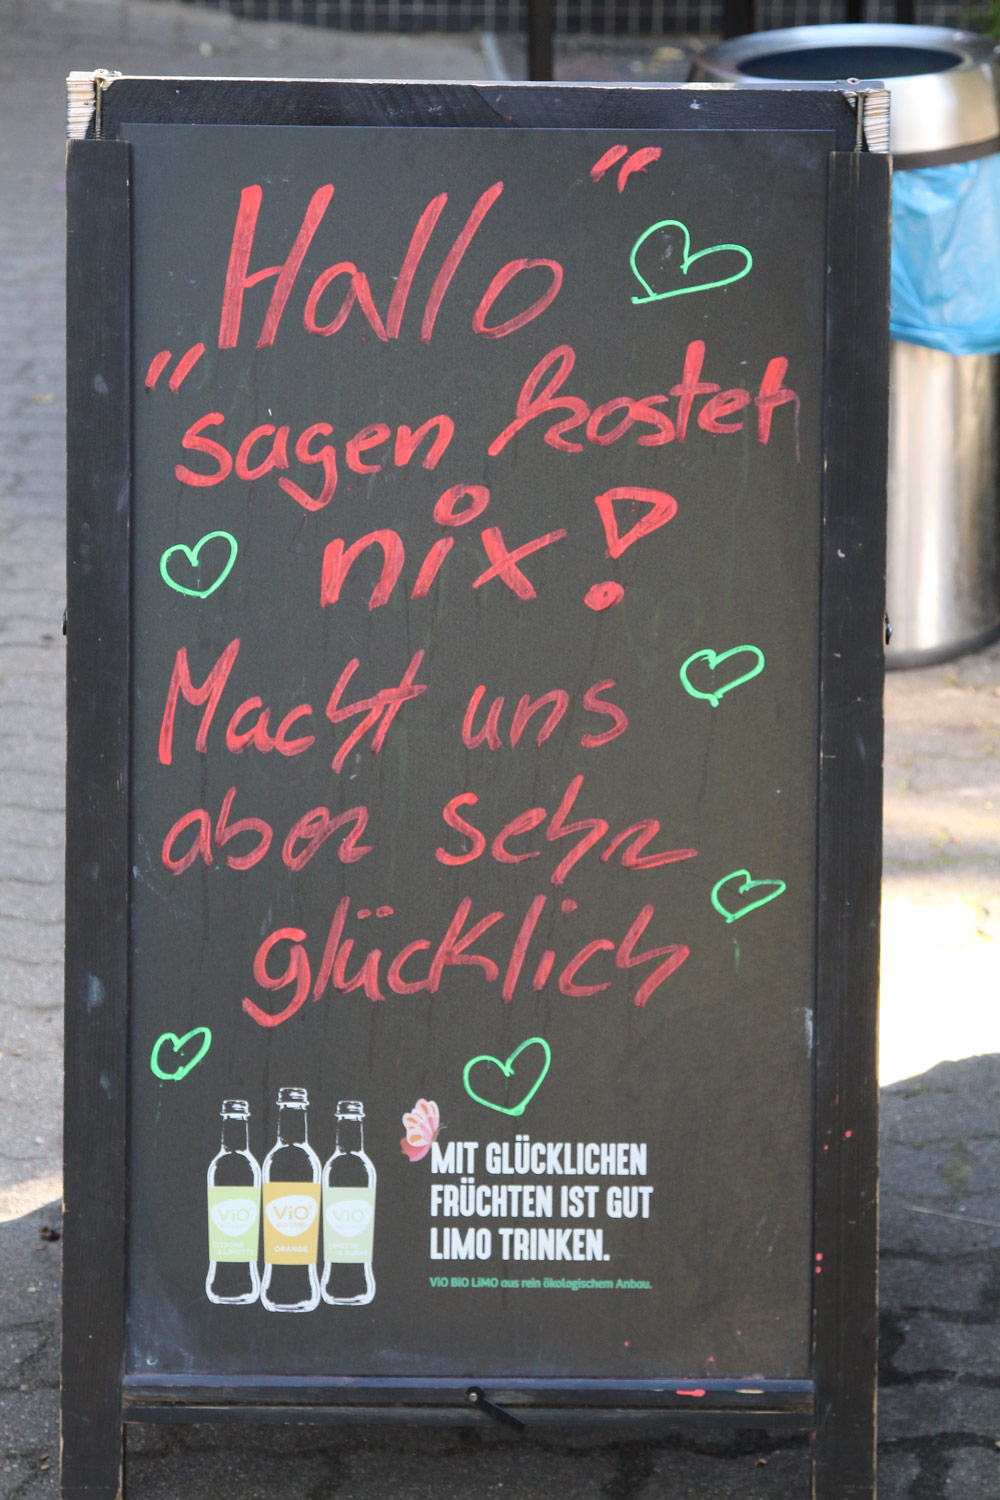 „Hallo“
sagen kostet
nix!
Macht uns
aber sehr
glücklich
MIT GLÜCKLICHEN
FRÜCHTEN IST GUT
LIMO TRINKEN.
ViO BiO LiMO aus rein ökologischem Anbau.
ViO
ViO
ViO
ZITRONE
& LIMETTE
ORANGE